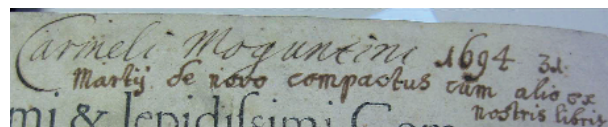 Carmeli Moguntini 1694 31
Martij de novo compactus cum alio ex
nostris libris
mi & lepidissimi Com